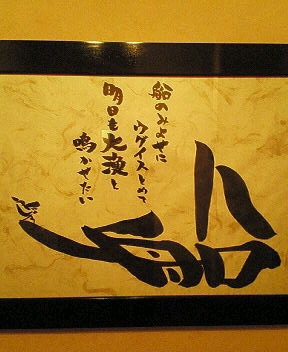 船のみよせに
ウグイスとめて
明日も大漁と
鳴かせたい
船